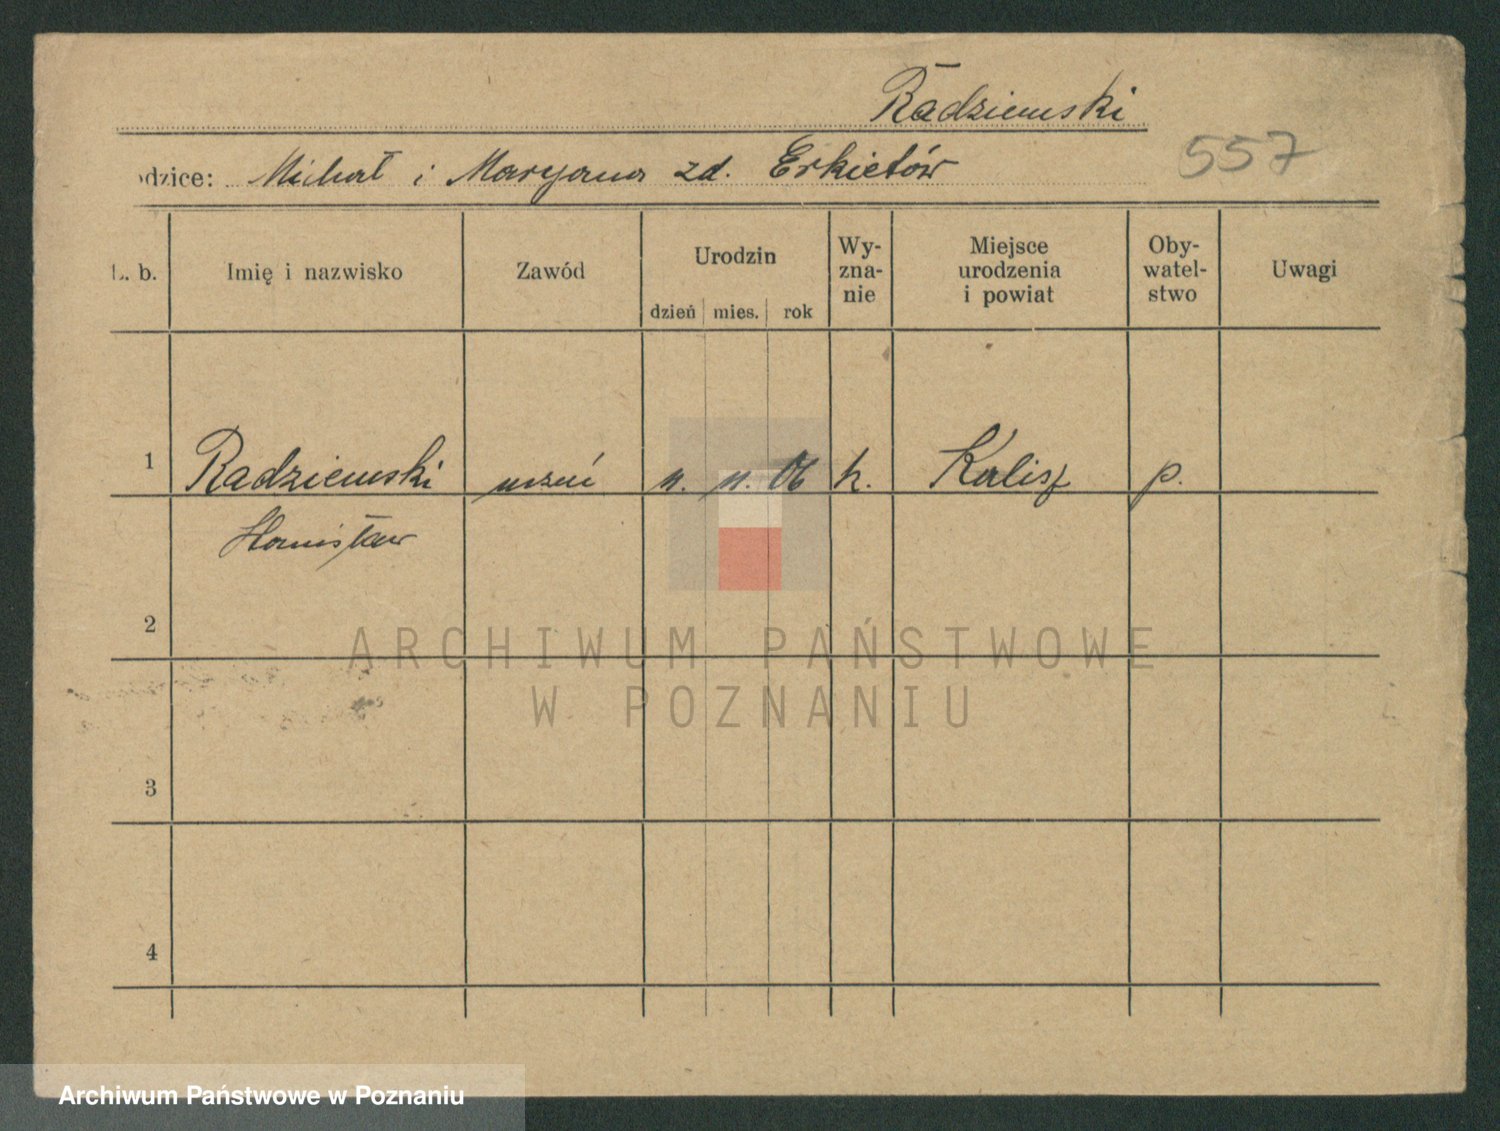 Radziemski
557
odzice: Michał i Maryana zd. Erkietów
L. b.
Imię i nazwisko
Zawód
Urodzin
dzień mies. rok
Wy-
zna-
nie
Miejsce
urodzenia
i powiat
Oby-
watel-
stwo
Uwagi
1 Radziemski uczeń n. n. 06 k. Kalisz p.
Stanisław
2
3
4
ARCHIWUM PAŃSTWOWE
W POZNANIU
Archiwum Państwowe w Poznaniu